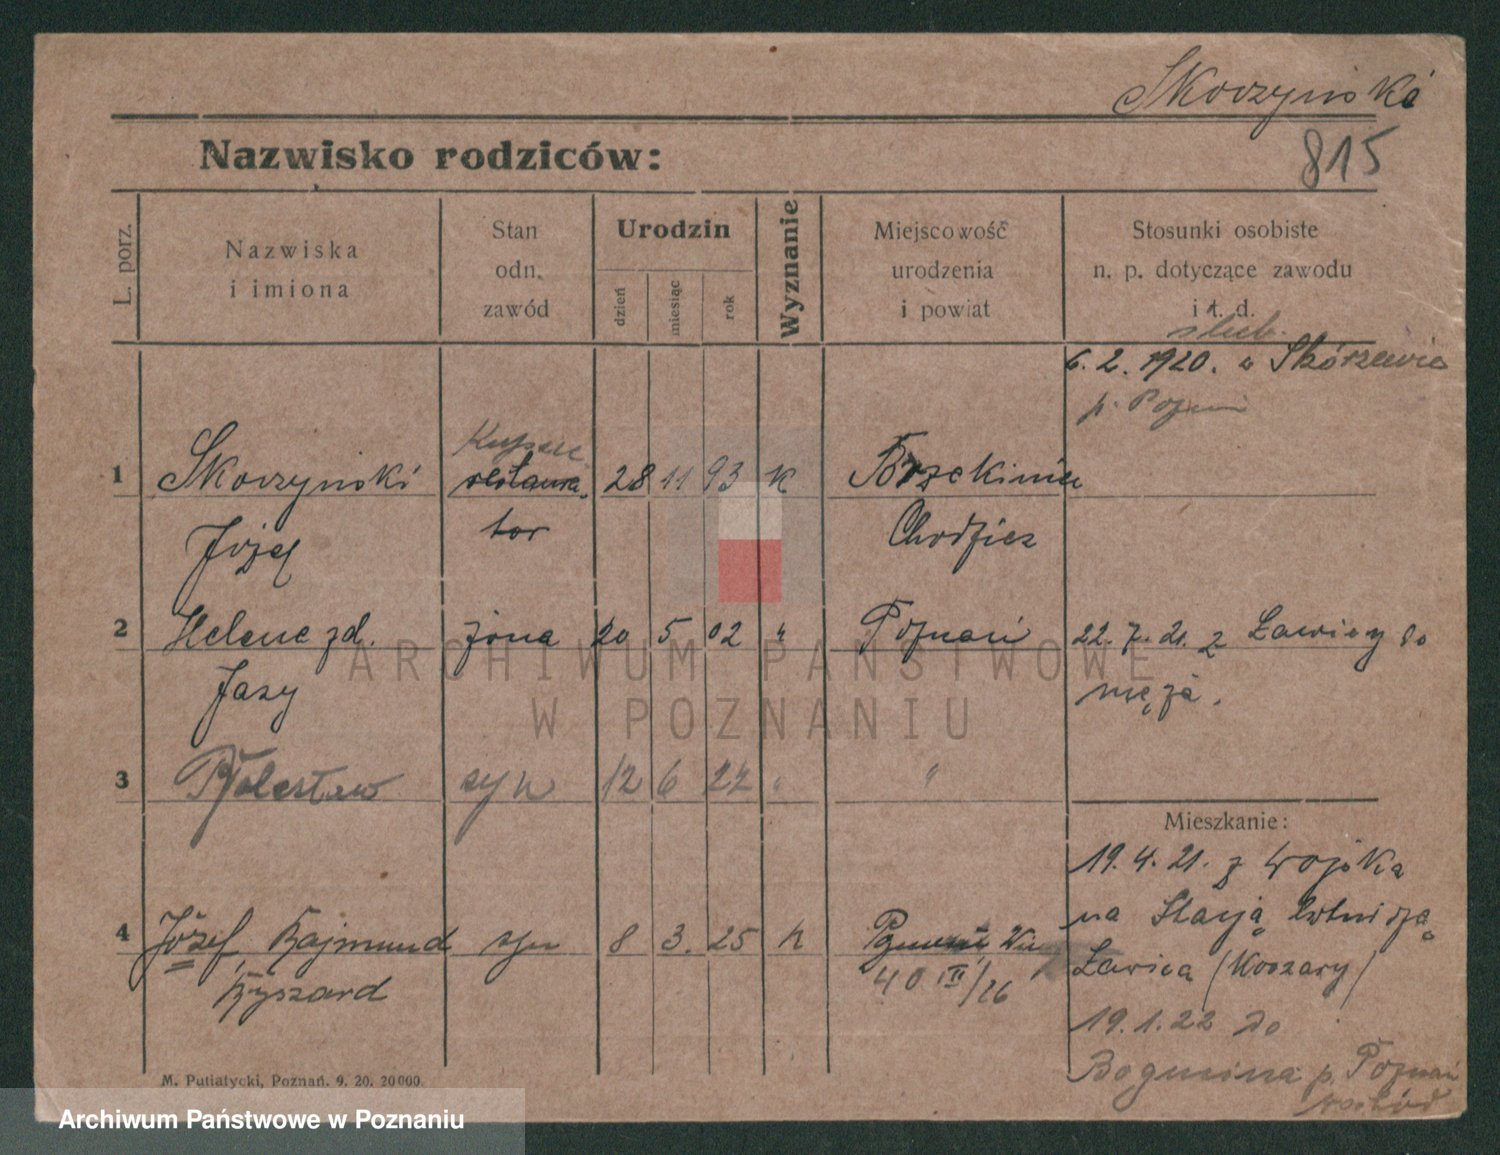 Skoczyński
815
Nazwisko rodziców:
L. porz.
Nazwiska
i imiona
Stan
odn.
zawód
Urodzin
dzień
miesiąc
rok
Wyznanie
Miejscowość
urodzenia
i powiat
Stosunki osobiste
n. p. dotyczące zawodu
i t. d.
ślub.
6. 2. 1920. w Skórzewie
p. Pozn
1 Skoczyński restaura- 28 11 93 K
tor
Józef Chodzież
2 Helene zd. żona 20 5 02 " Poznań 22. 7. 21. z Ławicy do
Jazy męża.
3 Bolesław syn 12 6 22 " "
Mieszkanie:
19. 4. 21. z wojska
na Stacją lotniczą
4 Józef, Rajmund syn 8 3. 25 k
Ryszard 40 II/26
Ławica (Koszary)
19. 1. 22 do
Bogucina p. Poznań
M. Putiatycki, Poznań. 9. 20. 20000.
ARCHIWUM PAŃSTWOWE
W POZNANIU
Archiwum Państwowe w Poznaniu